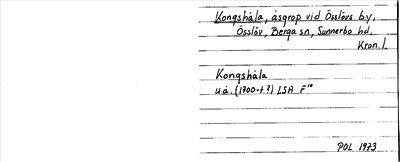 Kongshåla, åsgrop vid Össlövs by,
Össlöv, Berga sn, Sunnerbo hd.
Kron. l.
Kongshåla
u.å. (1700-t.?) LSA F¹⁰
POL 1973